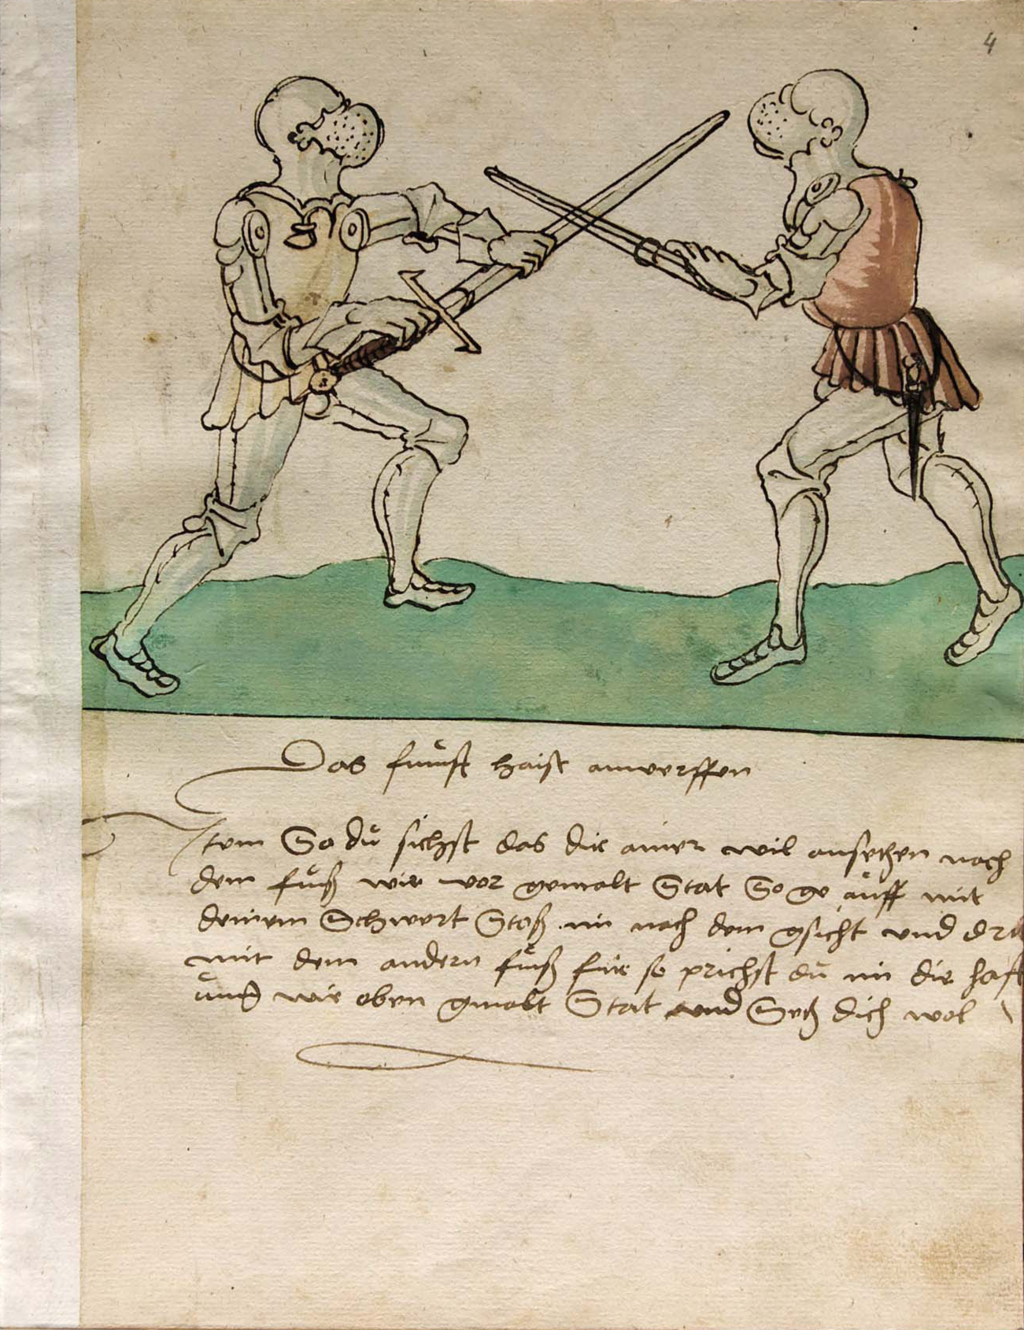 4
Das funfft haist anwerffen
Item So du sichst das dir ainer wil ansetzen nach
dem fuß wie vor gemalt Stat So ge auff mit
deinem Schwert Stoß im nach dem gsicht und
mit dem andern fuß fur so prichst du im die
und wie oben gmalt Stat und Setz dich wol